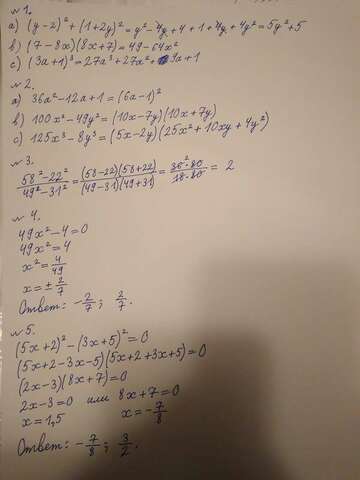 № 1.
a) (y-2)² + (1+2y)² = y² - 4y + 4 + 1 + 4y + 4y² = 5y² + 5
b) (7-8x)(8x+7) = 49 - 64x²
c) (3a+1)³ = 27a³ + 27a² + 9a + 1
№ 2.
a) 36a² - 12a + 1 = (6a-1)²
b) 100x² - 49y² = (10x-7y)(10x+7y)
c) 125x³ - 8y³ = (5x-2y)(25x² + 10xy + 4y²)
№ 3.
(58² - 22²)/(49² - 31²) = ((58-22)(58+22))/((49-31)(49+31)) = (36² · 80)/(18 · 80) = 2
№ 4.
49x² - 4 = 0
49x² = 4
x² = 4/49
x = ± 2/7
Ответ: -2/7; 2/7.
№ 5.
(5x+2)² - (3x+5)² = 0
(5x+2-3x-5)(5x+2+3x+5) = 0
(2x-3)(8x+7) = 0
2x-3 = 0 или 8x+7 = 0
x = 1,5 x = -7/8
Ответ: -7/8; 3/2.